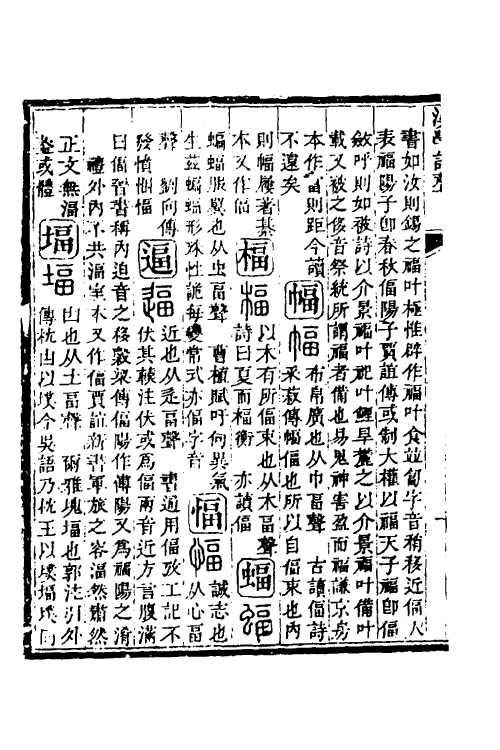 漢學諧聲
書如汝則錫之福叶極惟辟作福叶食並匐字音稍移近偪人
表福陽子卽春秋偪陽子賈誼傳或制大權以福天子福卽偪
歛呼則如被詩以介景福叶祀叶鯉旱麓之以介景福叶備叶
載又被之侈音祭統所謂福者備也易鬼神害盈而福謙京房
本作富則距今讀
不遠矣
幅 幅 布帛廣也从巾畐聲 古讀偪詩
采菽傳幅偪也所以自偪束也內
則幅屨著綦
本又作偪
楅 楅 以木有所偪束也从木畐聲
詩曰夏而楅衡 亦讀偪
蝠 蝠
蝙蝠服翼也从虫畐聲 曹植賦吁何異氣
生茲蝙蝠形殊性詭每變常式亦偪字音
愊 愊 誠志也
从心畐
聲 劉向傳
發憤悃愊
逼 逼 近也从辵畐聲 書通用偪攻工記不
伏其轅注伏或爲偪兩音近方言腹滿
曰偪 稱內迫音之移穀梁傳偪陽作傅陽又爲福陽之淆
禮外內不共湢室本又作偪賈誼新書軍旅之容湢然肅然
正文無湢
蓋或體
堛 堛 凷也从土畐聲 爾雅塊堛也郭注引外
傳枕凷以墣今吳語乃枕王以墣堛墣同